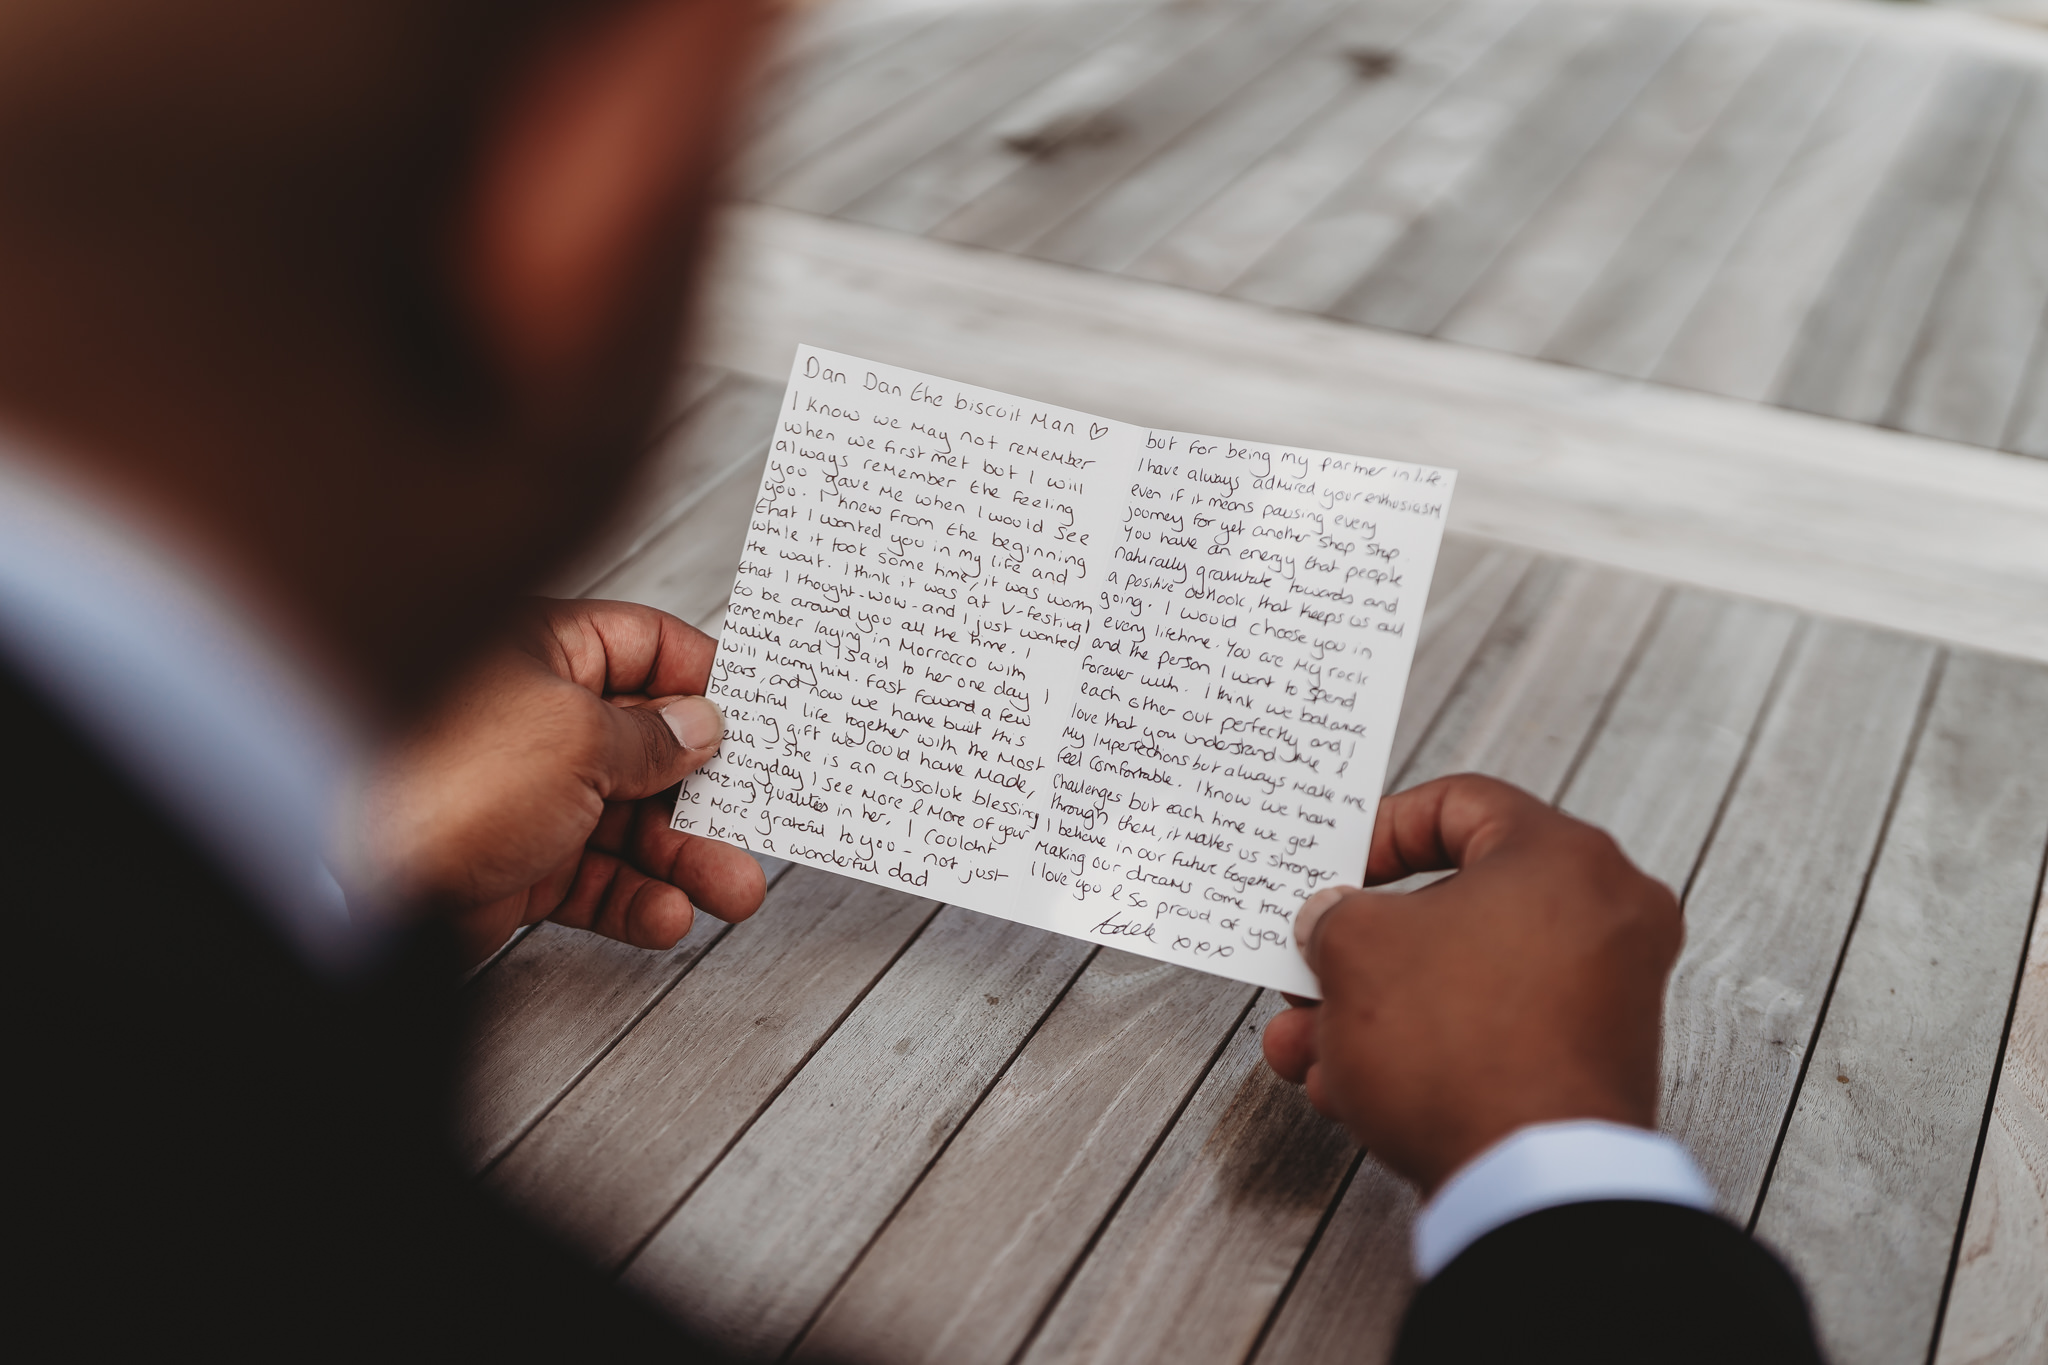 Dan Dan the biscuit Man ♡
I know we may not remember
when we first met but I will
always remember the feeling
you gave me when I would see
you. I knew from the beginning
that I wanted you in my life and
while it took some time, it was worth
the wait. I think it was at V-festival
that I thought-wow-and I just wanted
to be around you all the time. I
remember laying in Morrocco with
Malika and I said to her one day I
will marry him. Fast foward a few
years, and now we have built this
beautiful life together with the most
gift we could have made,
- She is an absolute blessing
everyday I see more & more of your
amazing qualities in her. I couldnt
be more grateful to you - not just
for being a wonderful dad
but for being my partner in life.
I have always admired your enthusiasm
even if it means pausing every
journey for yet another shop stop.
You have an energy that people
naturally gravitate towards and
a positive outlook, that keeps us all
going. I would choose you in
every lifetime. You are my rock
and the person I want to spend
forever with. I think we balance
each other out perfectly and I
love that you understand me &
my imperfections but always make me
feel comfortable. I know we have
challenges but each time we get
through them, it makes us stronger
I believe in our future together
making our dreams come true
I love you & so proud of you
Adele xxx